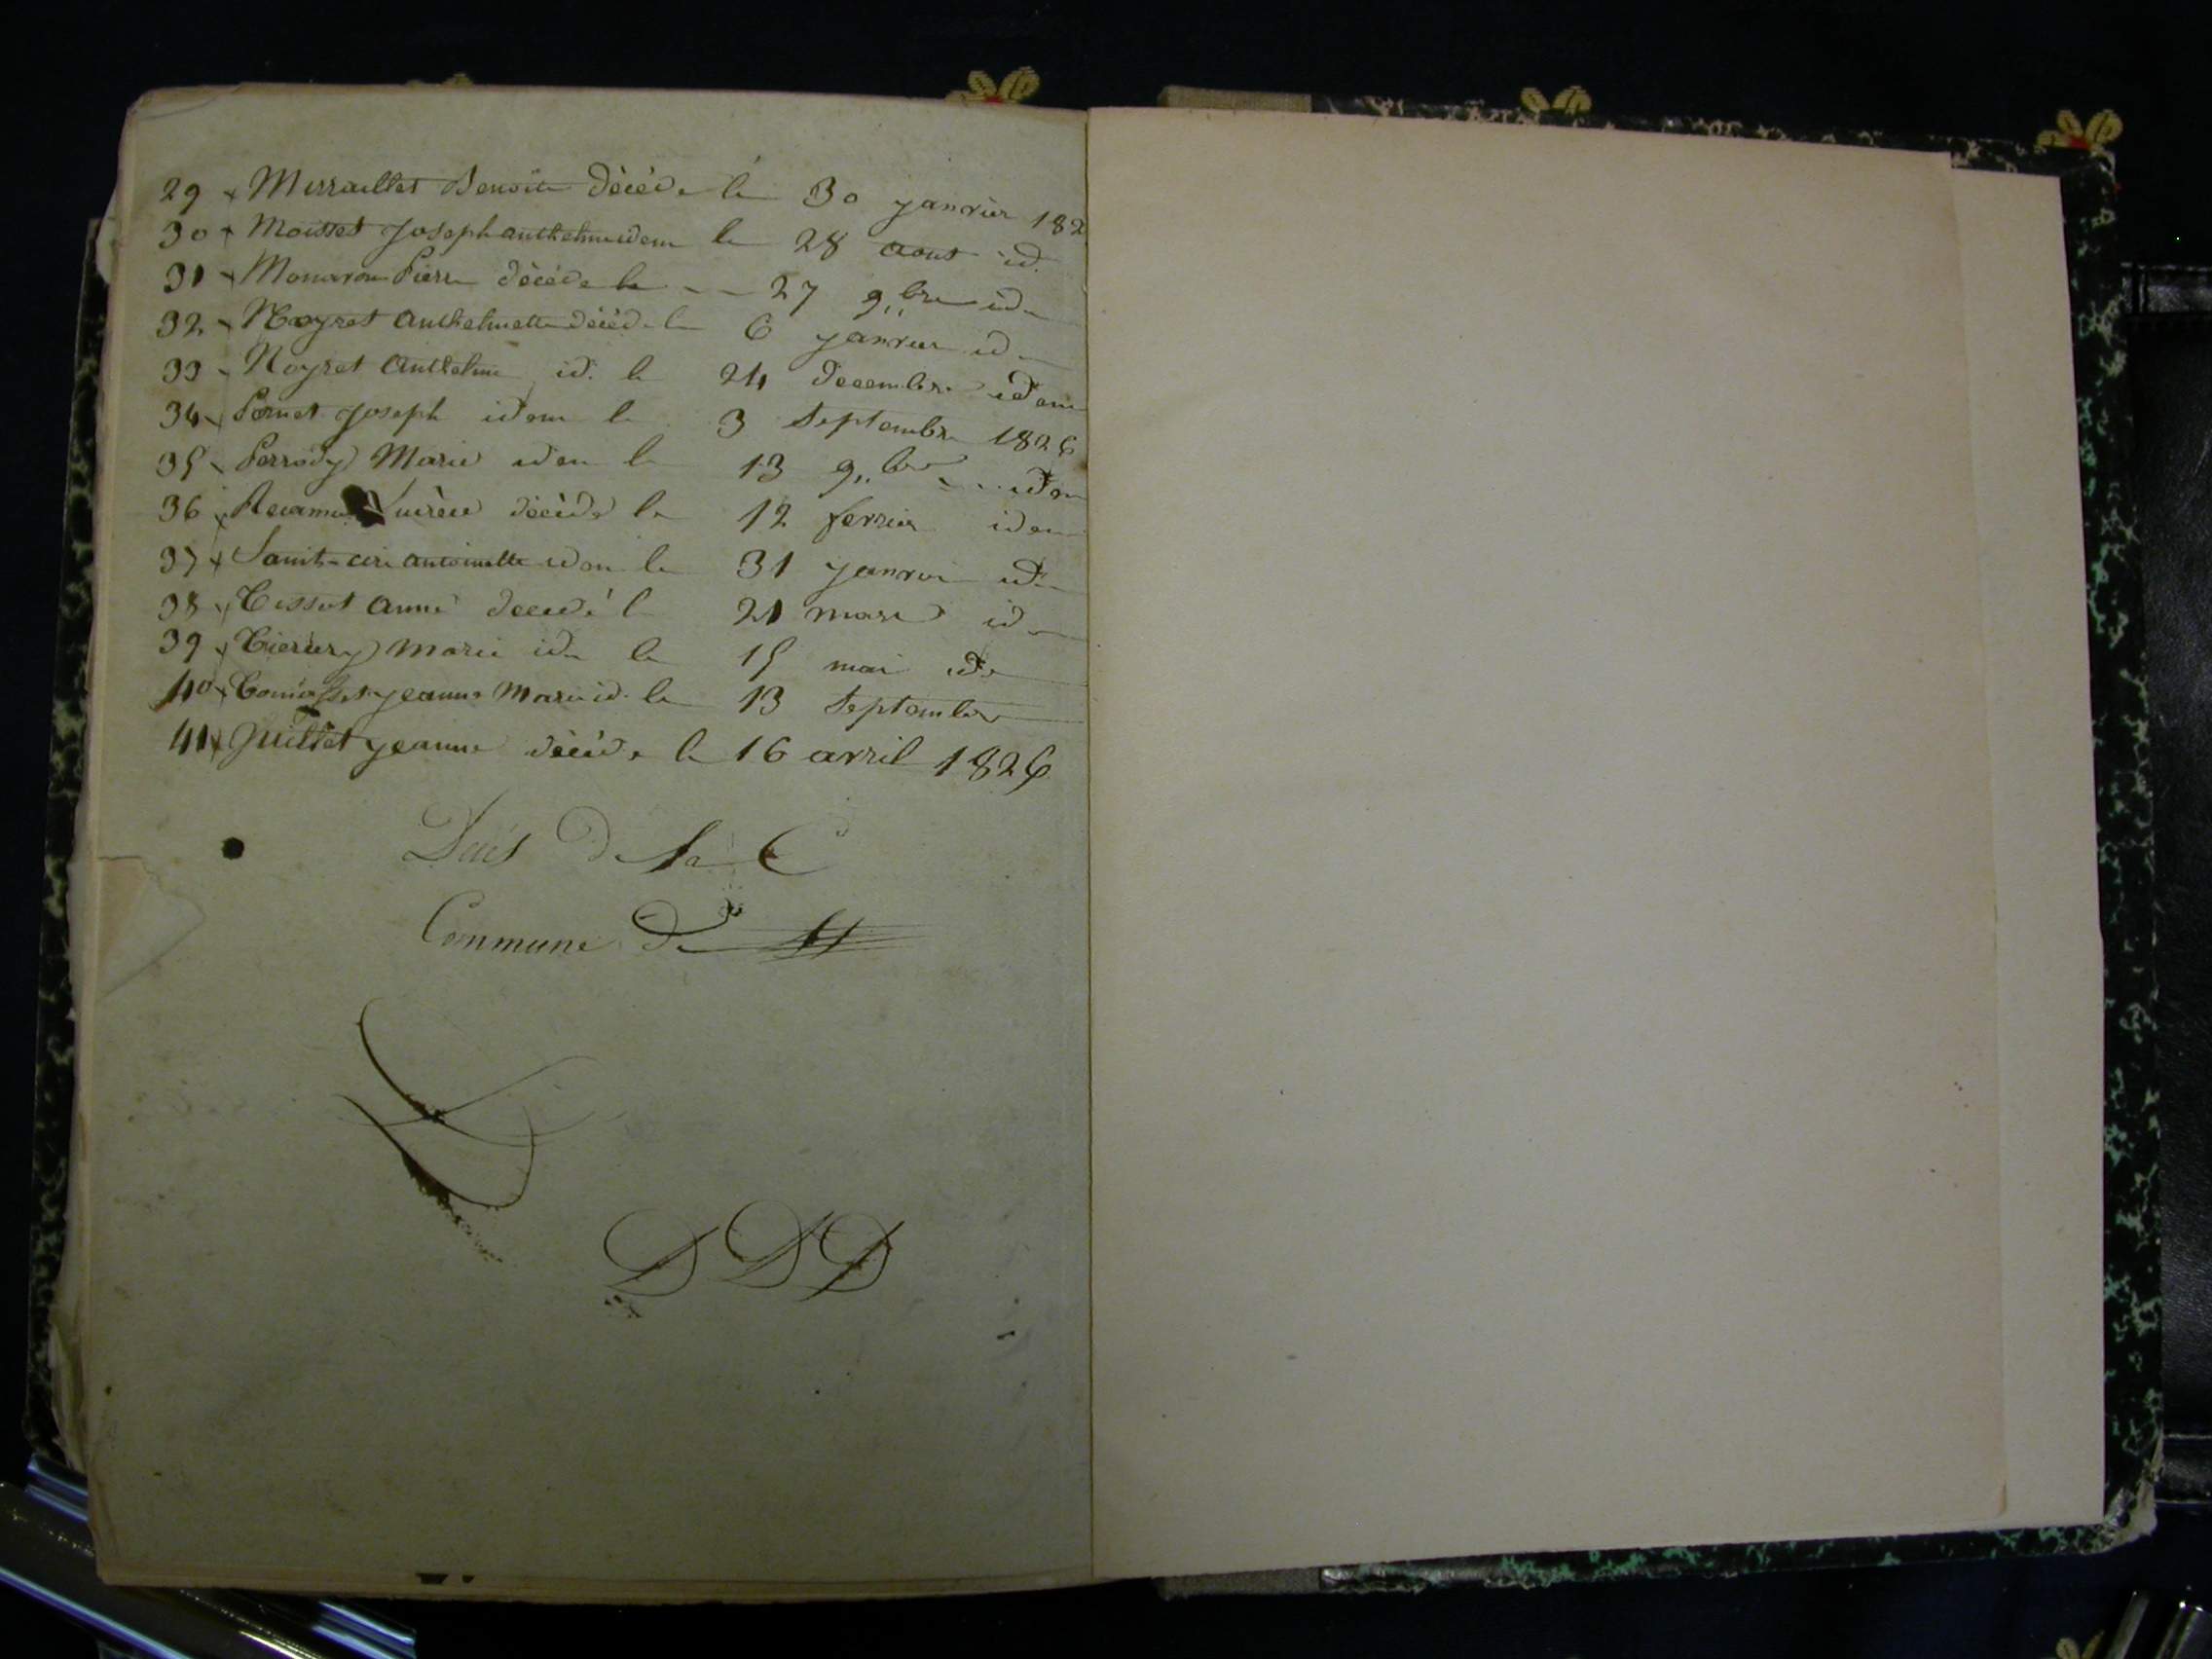 29 Merraillet Benoite décédé le 30 janvier 182
30 Moisset Joseph anthelme idem le 28 aout id.
31 Monavon Pierre décédé le 27 9,,bre id
32 Noyret Anthelmette décédé le 6 janvier id
33 Noyret Anthelme id. le 24 decembre idem
34 Pernet Joseph idem le 3 septembre 1826
35 Perrody Marie idem le 13 9,,bre idem
36 Lucrèce décédé le 12 fevrier idem
37 Saint-cir antoinette idem le 31 janvier id
38 Tissot anne decedé l 21 mars id
39 marie id le 15 mai id
40 jeanne Marie id. le 13 septembre
41 Juillet jeanne décédé le 16 avril 1826
Décès De la C
Commune De
D D D